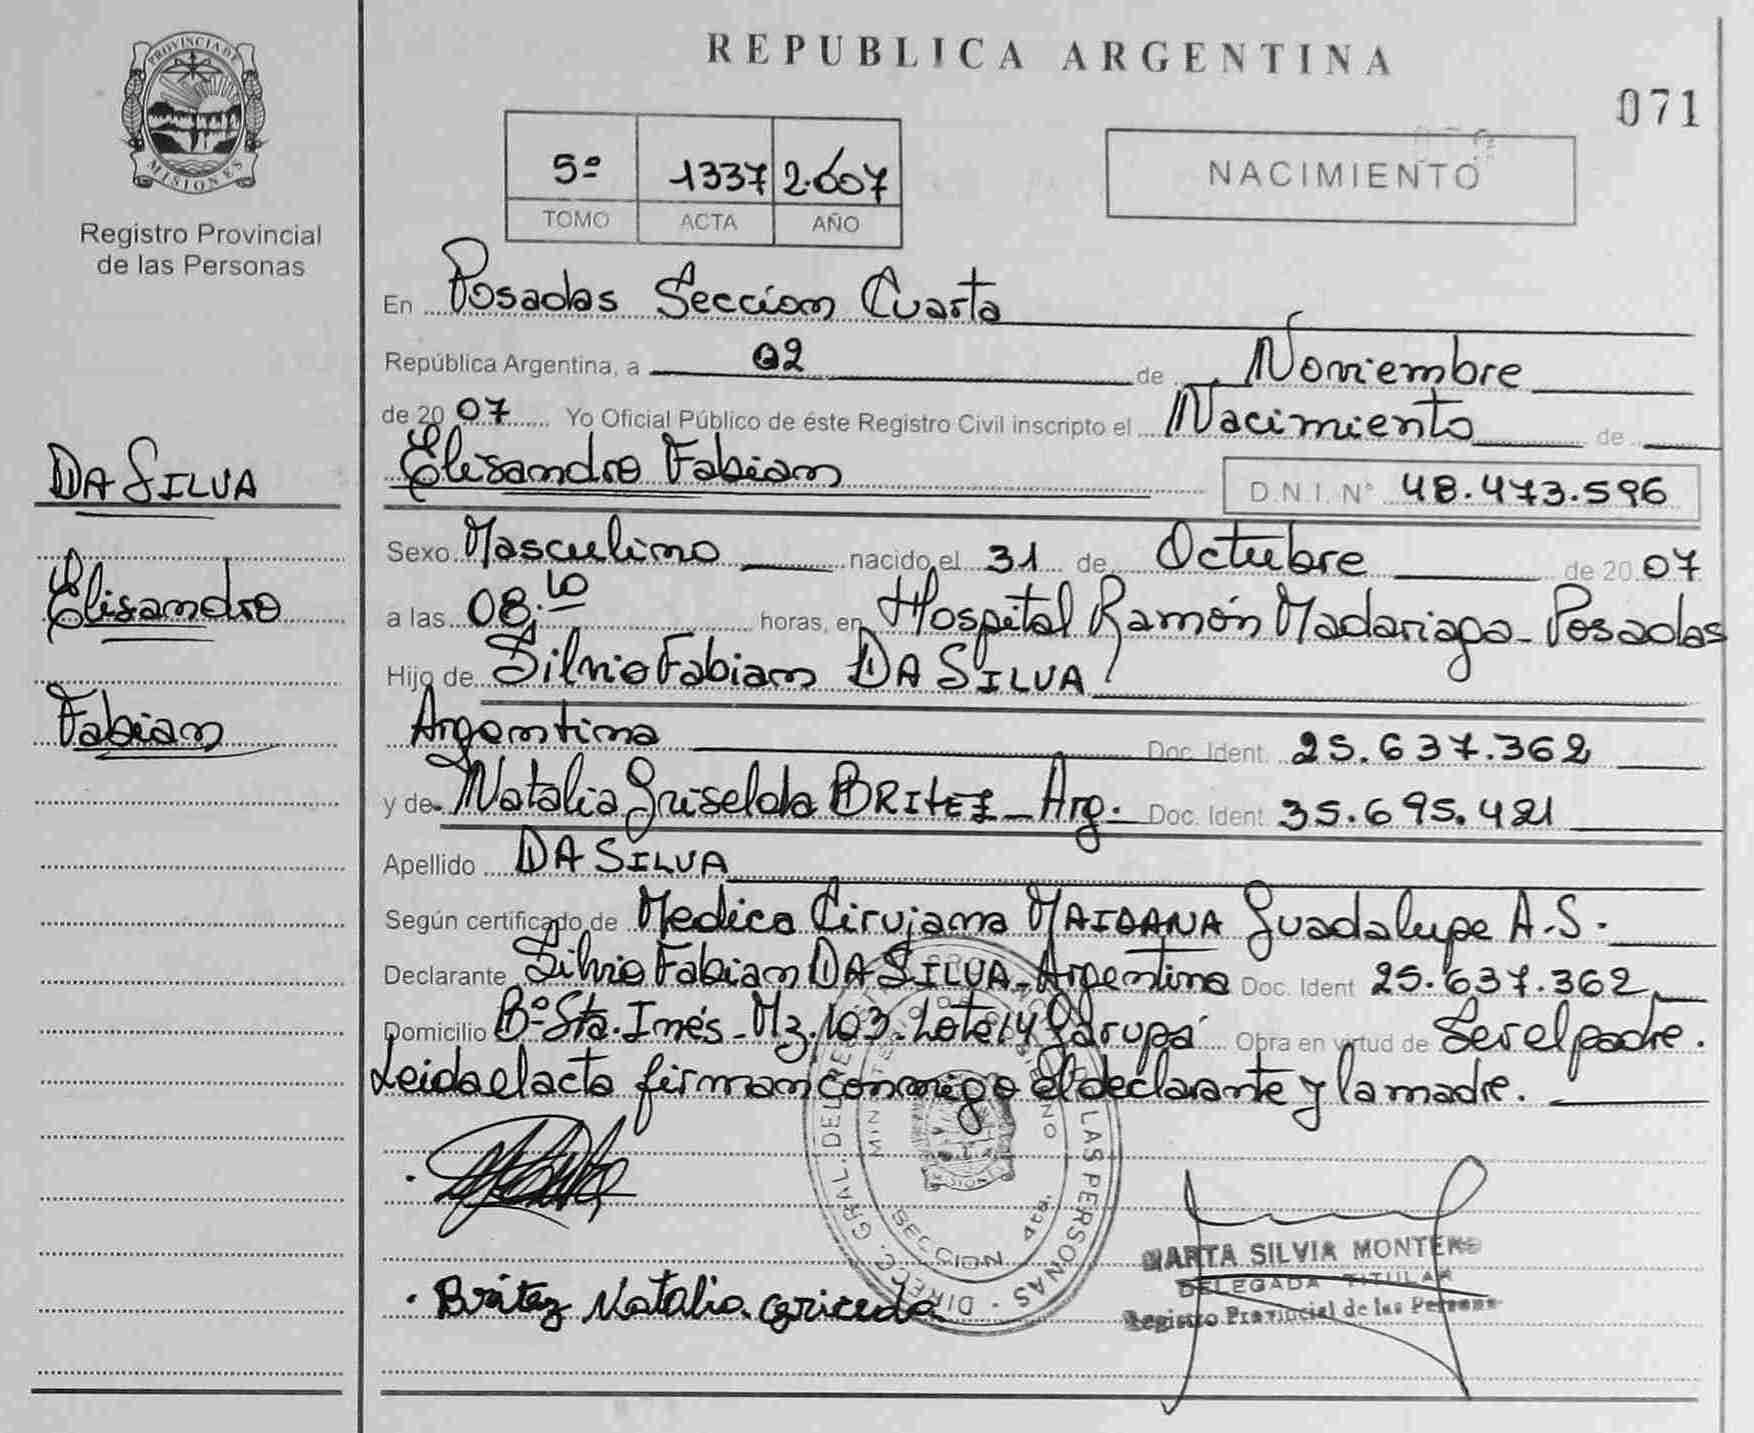 REPUBLICA ARGENTINA
071
PROVINCIA DE
MISIONES
Registro Provincial
de las Personas
5º 1337 2.007
TOMO ACTA AÑO
NACIMIENTO
En Posadas Sección Cuarta
República Argentina, a 02 de Noviembre
de 20 07 Yo Oficial Público de éste Registro Civil inscripto el Nacimiento de
Elisandro Fabian D.N.I. Nº 48.473.596
DA SILVA
Elisandro
Fabian
Sexo Masculino nacido el 31 de Octubre de 20 07
a las 08.10 horas, en Hospital Ramón Madariaga - Posadas
Hijo de Silvio Fabian DA SILVA
Argentina Doc. Ident. 25.637.362
y de Natalia Griselda BRITEZ - Arg. Doc. Ident. 35.695.421
Apellido DA SILVA
Según certificado de Medica Cirujana MAIDANA Guadalupe A.S.
Declarante Silvio Fabian DA SILVA - Argentino Doc. Ident 25.637.362
Domicilio Bº Sta. Inés - Mz. 103 - Lote 14 Garupá Obra en virtud de Ser el padre.
Leida el acta firman conmigo el declarante y la madre.
DIRECC. GRAL. DEL REGISTRO PROVINCIAL DE LAS PERSONAS
MINISTERIO DE GOBIERNO
SECCION 4ta.
Britez Natalia Griceda
MARTA SILVIA MONTERO
DELEGADA TITULAR
Registro Provincial de las Personas